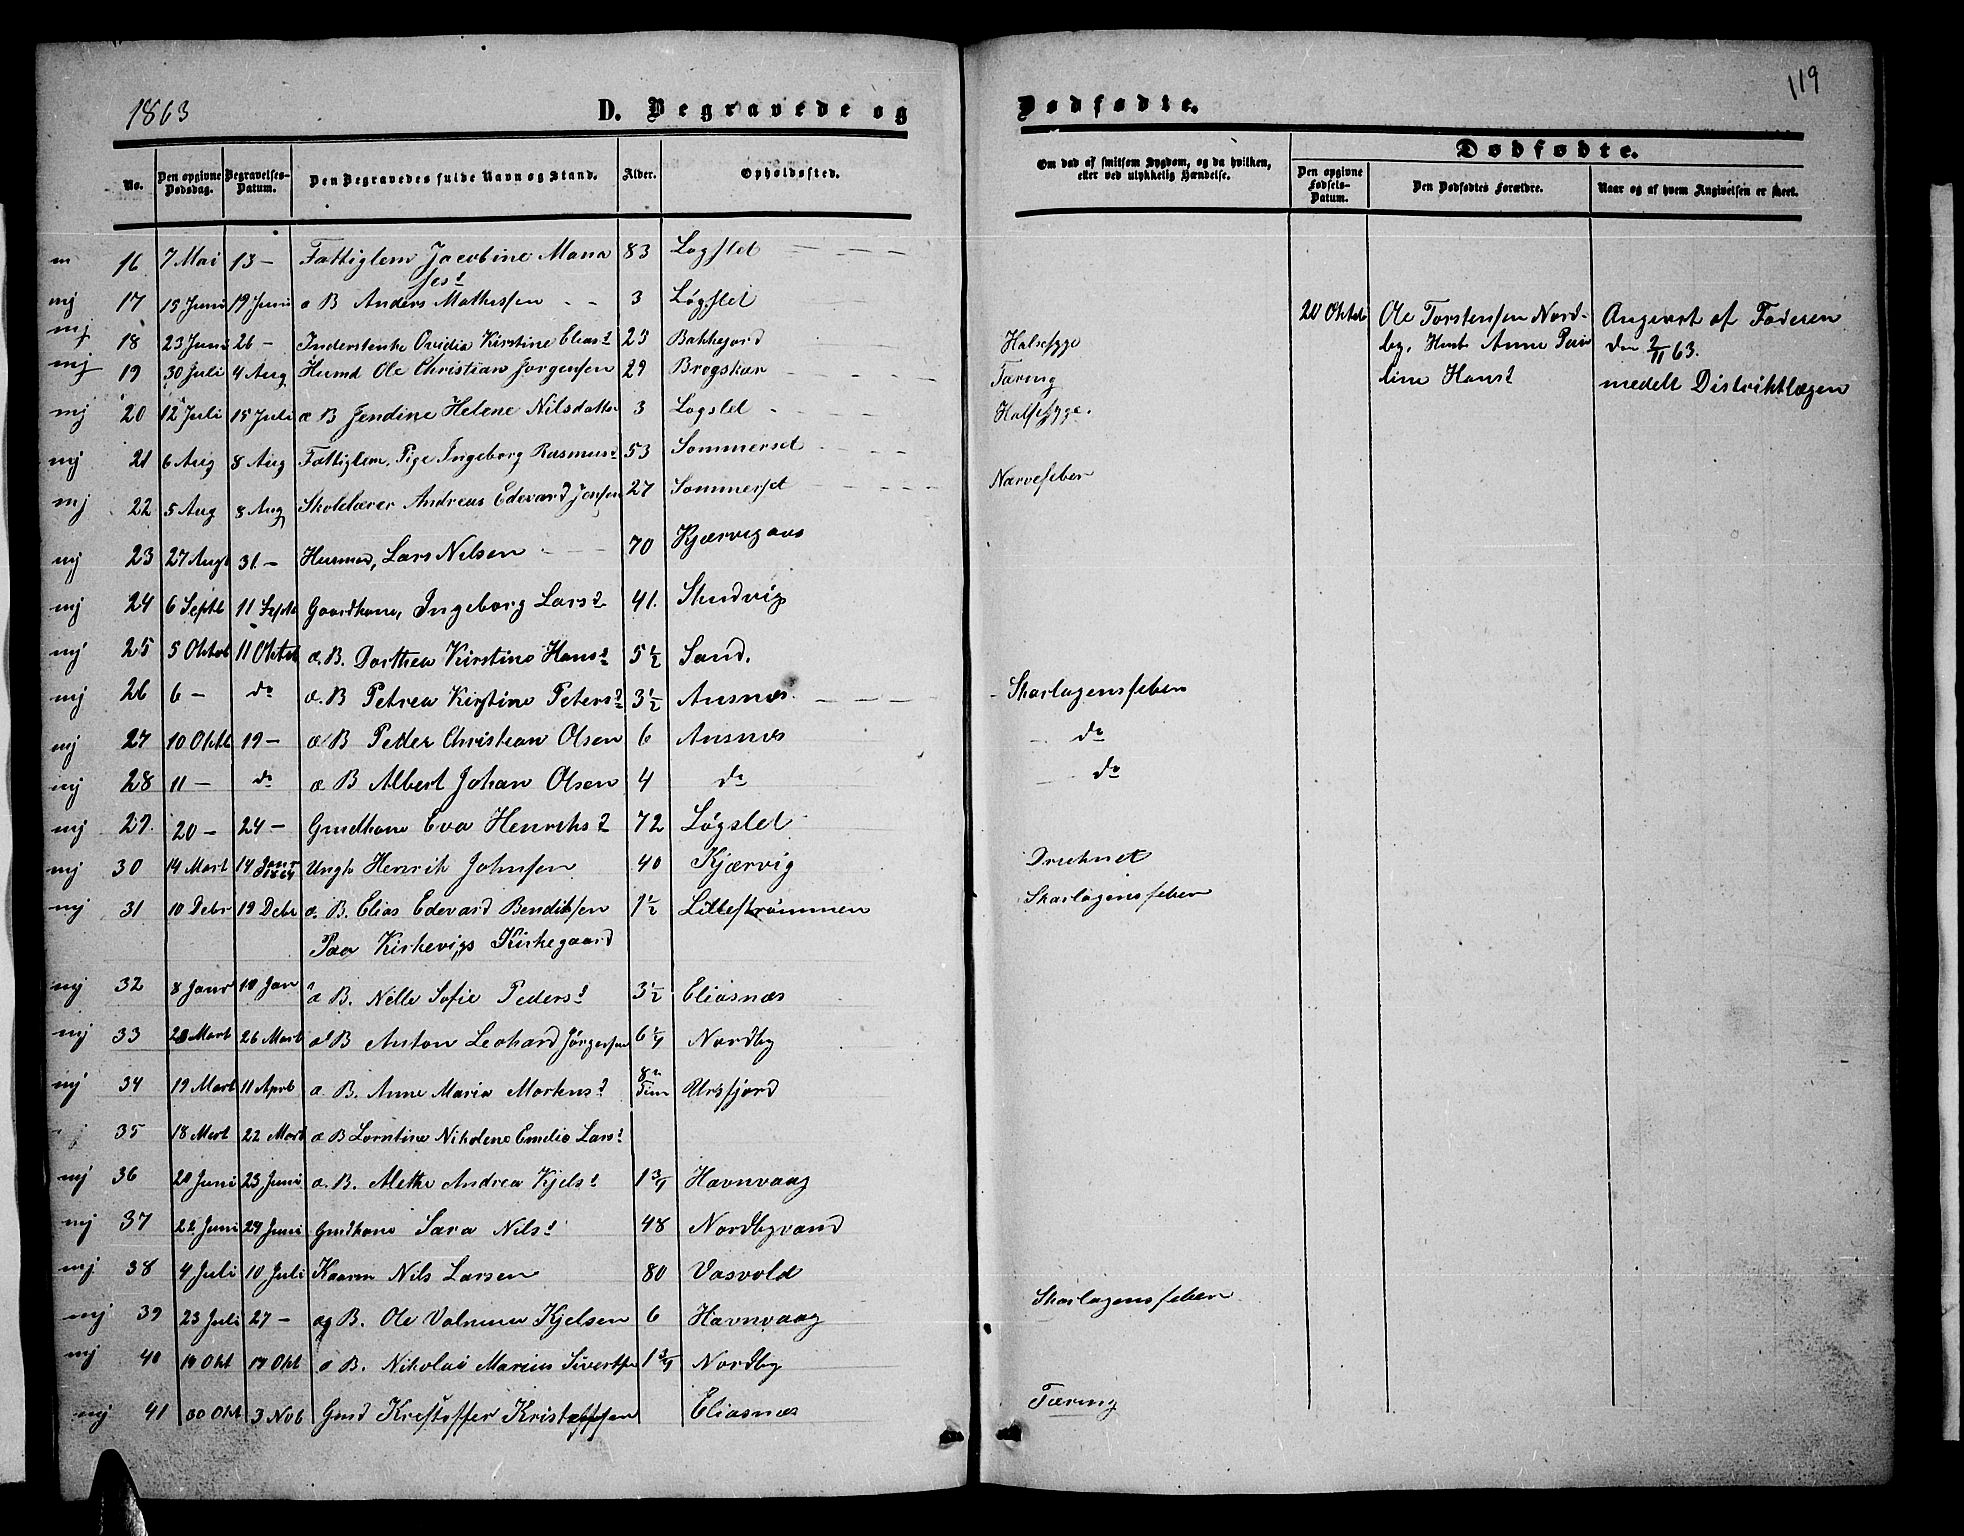 1863 D. Begravede og Dødfødte. 119
No. Den opgivne Dødsdag. Begravelses-Datum. Den Begravedes fulde Navn og Stand. Alder. Opholdssted. Om død af smitsom Sygdom, og da hvilken, eller ved ulykkelig Hændelse. Dødfødte.
Den opgivne Fødsels-Datum. Den Dødfødtes Forældre. Naar og af hvem Angivelsen er skeet.
m 16 7 Mai 13 – Fattiglem Jacobine Mana 83 Løgslet
ses d
mj 17 15 Juni 19 Juni æ B Anders Mathissen 3 Løgslet
20 Oktob Ole Torstensen Nord- Angivet af Faderen
mj 18 23 Juni 26 – Inderstenke Ovidia Kirstine Elias d 23 Bakkejord Halssyge
by, Hust Anne Pau den 2/11 63.
mj 19 30 Juli 4 Aug Husmd Ole Christian Jørgensen 29 Brøgskar Tæring
line Hans d medelt Distriktlægen
mj 20 12 Juli 15 Juli æ B Jendine Helene Nilsdatter 3 Løgslet Halssyge.
mj 21 6 Aug 8 Aug Fattiglem. Pige Ingeborg Rasmus d 53 Sommerset
mj 22 5 Aug 8 Aug Skolelærer Andreas Edevard Jensen 27 Sommerset Nervefeber
mj 23 27 Augt 31 – Husmd, Lars Nilsen 70 Kjærvigaas
mj 24 6 Septb 11 Septb Gaardkone, Ingeborg Lars d 41. Skudvig
mj 25 5 Oktob 11 Oktob æ. B. Dorthea Kirstine Hans d 5 1/2 Sand.
mj 26 6 – do æ. B Petrea Kirstine Peters d 3 1/2 Ansnæs. Skarlagensfeber
mj 27 10 Oktb 19 – æ B Petter Christian Olsen 6 Ansnæs do
mj 28 11 – do æ B Albert Johan Olsen 4 do do
mj 29. 20 – 24 – Gmdkone Eva Henriks d 72 Løgslet
mj 30 14 Mart 14 Janr 1864 Ungk Henrik Johnsen 40 Kjærvig Druknet
mj 31 10 Debr 19 Debr æ. B. Elias Edevard Bendiksen 1 1/2 Lillestrømmen Skarlagensfeber
Paa Kirkevigs Kirkegaard
mj 32 8 Janr 10 Jan æ B. Nille Sofie Peders d 3 1/2 Eliasnæs
mj 33 20 Mart 26 Mart æ B Anton Leohard Jørgensen 6 1/4 Nordby
mj 34 19 Mart 11 Aprb æ B. Anne Maria Mortens d 8 Tim Ursfjord
35 18 Mart 22 Mart æ B Lorntine Nikoline Emelie Lars d
mj 36 20 Juni 23 Juni æ. B. Methe Andrea Kjels d 1 3/4 Havnvaag
mj 37 22 Juni 29 Juni Gmdkone Sara Nils d 48 Nordbyvand
mj 38 4 Juli 10 Juli Kaarm Nils Larsen 80 Vasvold
mj 39 23 Juli 27 – æg B. Ole Volmer Kjelsen 6 Havnvaag Skarlagensfeber
mj 40 14 Okt 17 Okt æ B. Nikolai Marius Sivertsen 1 3/4 Nordby
mj 41 30 Okt 3 Nob Gmd Krestoffer Kristoffsen Eliasnæs Tæring